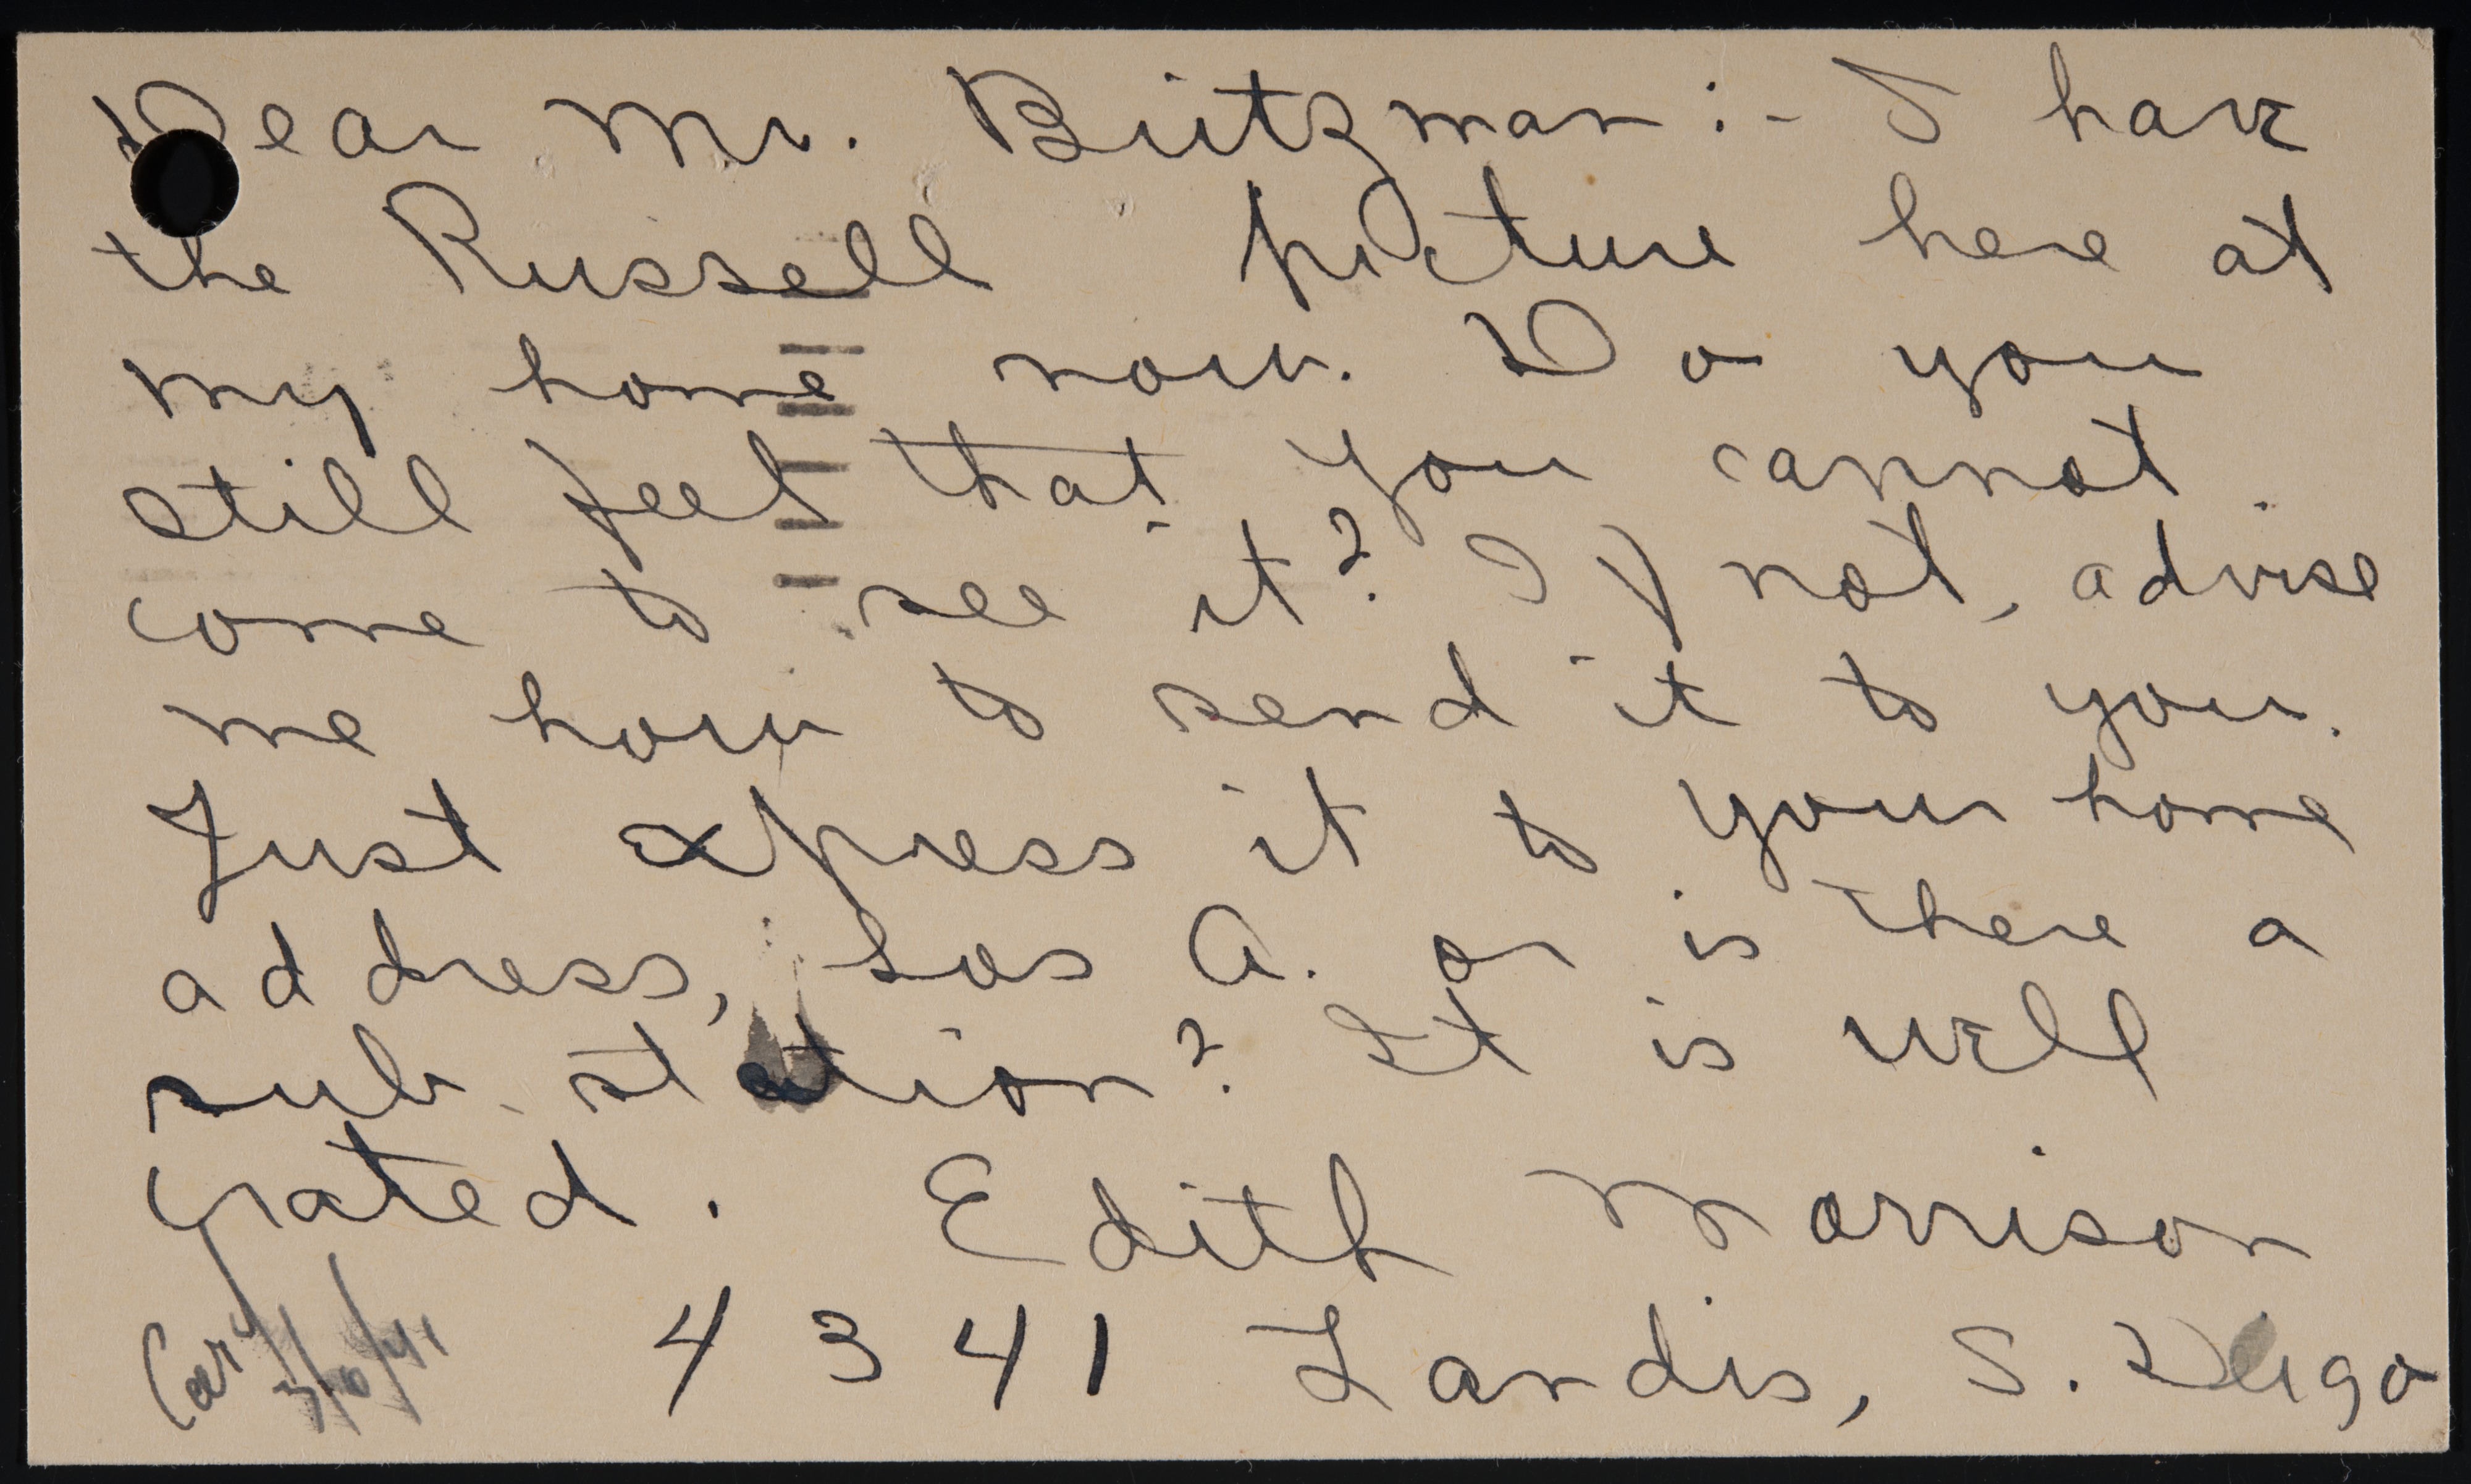 Dear Mr. Britzman:- I have
the Russell picture here at
my home now. Do you
still feel that you cannot
come to see it? If not, advise
me how to send it to you.
Just express it to your home
address, Los A. or is there a
sub-station? It is well
crated. Edith Morrison
4341 Landis, S. Diego
3/10/41